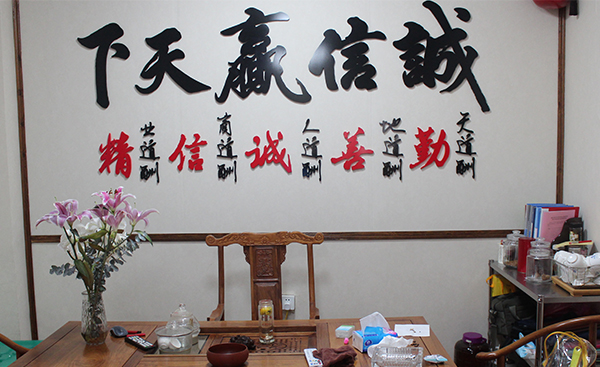 誠信赢天下
天道酬勤
地道酬善
人道酬诚
商道酬信
业道酬精